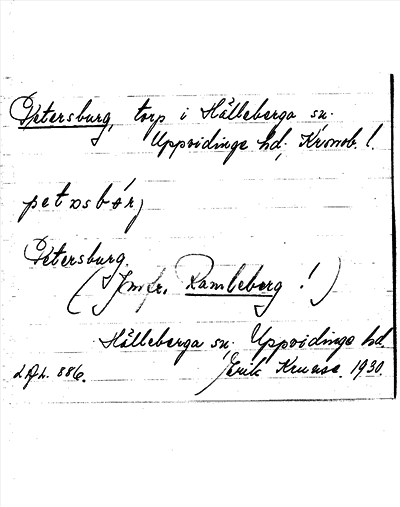 Petersburg, torp i Hälleberga sn.
Uppvidinge hd, Kronob. l.
Petersburg.
(Jmfr. Ramleberg!)
Hälleberga sn, Uppvidinge hd.
L.A.L. 886. Erik Kruuse. 1930.